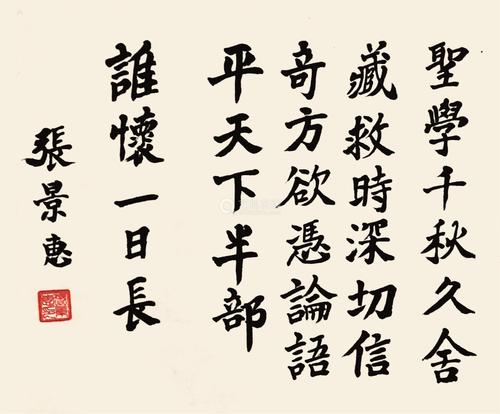 聖學千秋久舍
藏救時深切信
奇方欲憑論語
平天下半部
誰懷一日長
張景惠